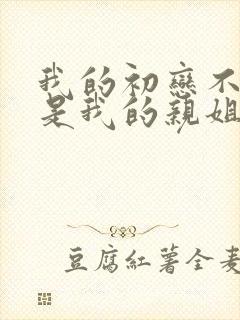 我的初戀不
是我的親姐
豆腐紅薯全麦